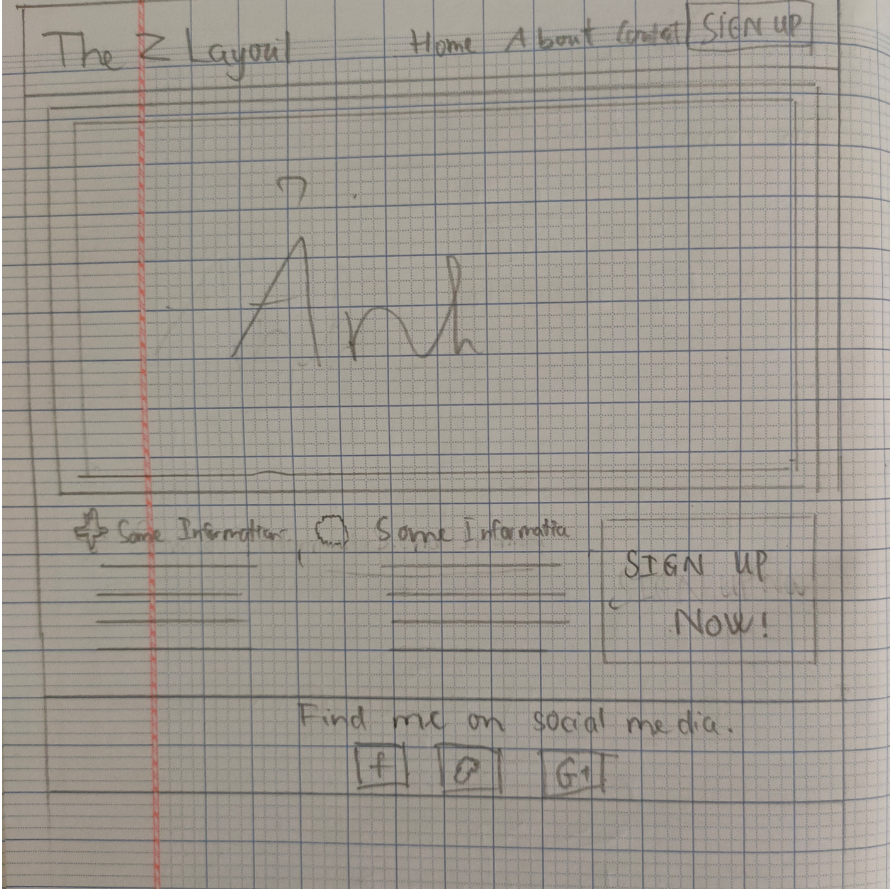 The Z Layout Home About Contact SIGN UP
Ảnh
Some Information Some Informatio
SIGN UP
NOW!
Find me on social media.
f G+